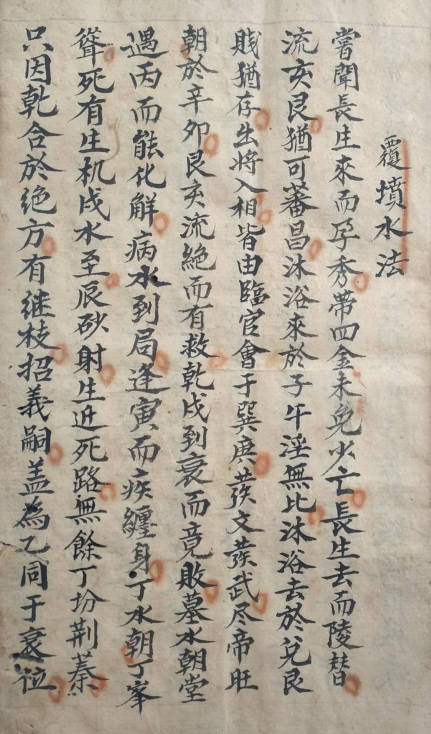 覆墳水法
嘗聞長生來而孕秀帶四金未免少亡長生去而陵替
流亥艮猶可蕃昌沐浴來於子午淫無比沐浴去於兌艮
賎猶存出將入相皆由臨官會于巽庚𤼵文𤼵武尽帝旺
朝於辛卯艮亥流絶而有救乾戌到衰而竟敗墓水朝堂
遇丙而能化解病水到局逢寅而疾纏身丁水朝丁峯
聳死有生机戌水至辰砂射生近死路無餘丁坋荆蓁
只因乾合於绝方有继枝招義嗣盖為乙同于衰位